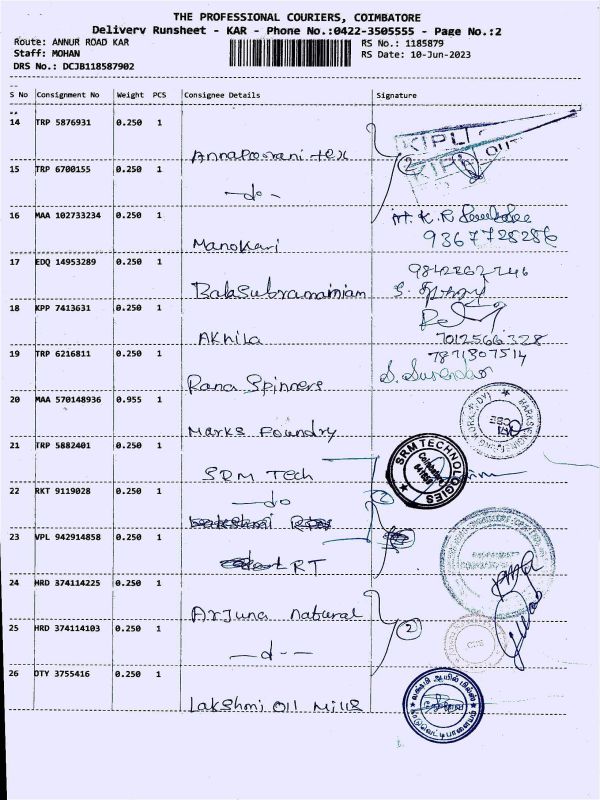 THE PROFESSIONAL COURIERS, COIMBATORE
Delivery Runsheet - KAR - Phone No.:0422-3505555 - Page No.:2
Route: ANNUR ROAD KAR
RS No.: 1185879
Staff: MOHAN
RS Date: 10-Jun-2023
DRS No.: DCJB118587902
S No Consignment No Weight PCS Consignee Details Signature
14 TRP 5876931 0.250 1
Annapoorani tex
KIPL
15 TRP 6700155 0.250 1
-do-
2
KIPL
16 MAA 102733234 0.250 1
Manokari
9367728286
17 EDQ 14953289 0.250 1
Balasubramaniam
18 KPP 7413631 0.250 1
Akhila
7012566328
19 TRP 6216811 0.250 1
7871307514
Rana Spinners
20 MAA 570148936 0.955 1
Marks Foundry
21 TRP 5882401 0.250 1
SRM Tech
SRM TECHNOLOGIES
Coimbatore
22 RKT 9119028 0.250 1
-do
2
23 VPL 942914858 0.250 1
LRT
24 HRD 374114225 0.250 1
Arjuna natural
25 HRD 374114103 0.250 1
-d--
2
26 DTY 3755416 0.250 1
Lakshmi Oil Mills